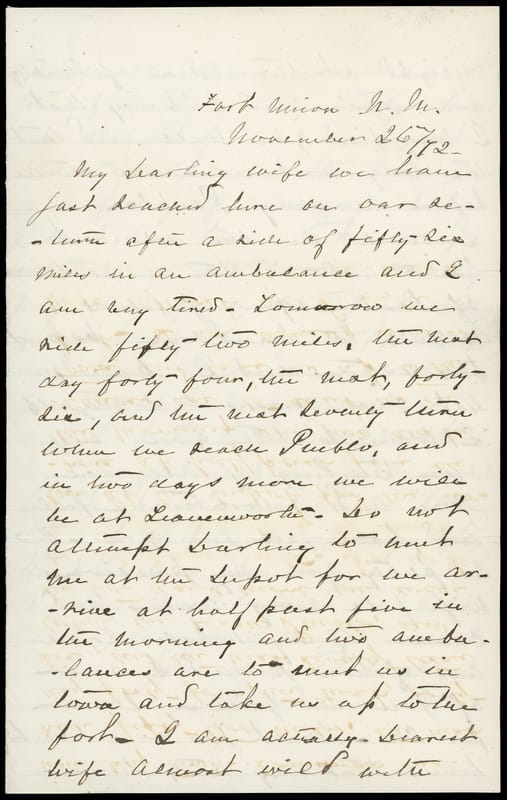 Fort Union N. M.
November 26th/72-
My Darling wife we have
just reached here on our re-
-turn after a ride of fifty six
miles in an ambulance and I
am very tired - Tomorrow we
ride fifty two miles, the next
day forty four, the next, forty
six, and the next seventy three
when we reach Pueblo, and
in two days more we will
be at Leavenworth - Do not
attempt Darling to meet
me at the Depot for we ar-
-rive at half past five in
the morning and two ambu-
-lances are to meet us in
town and take us up to the
fort - I am actually Dearest
wife almost wild with